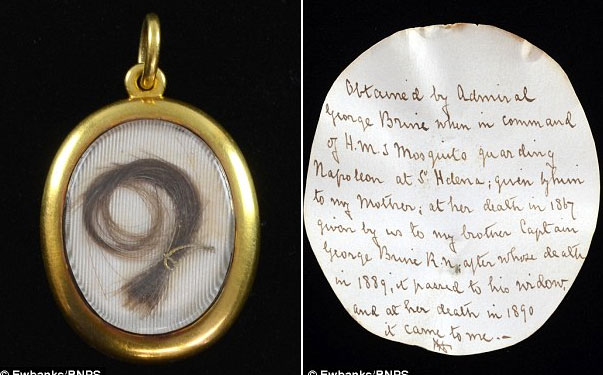 Obtained by Admiral
George Brine when in command
of H.M.S Mosquito guarding
Napoleon at St Helena; given by him
to my Mother; at her death in 1867
given by us to my brother Captain
George Brine R.N, after whose death
in 1889, it passed to his widow,
and at her death in 1890
it came to me. —
© Ewbanks/BNPS
© Ewbanks/BNPS